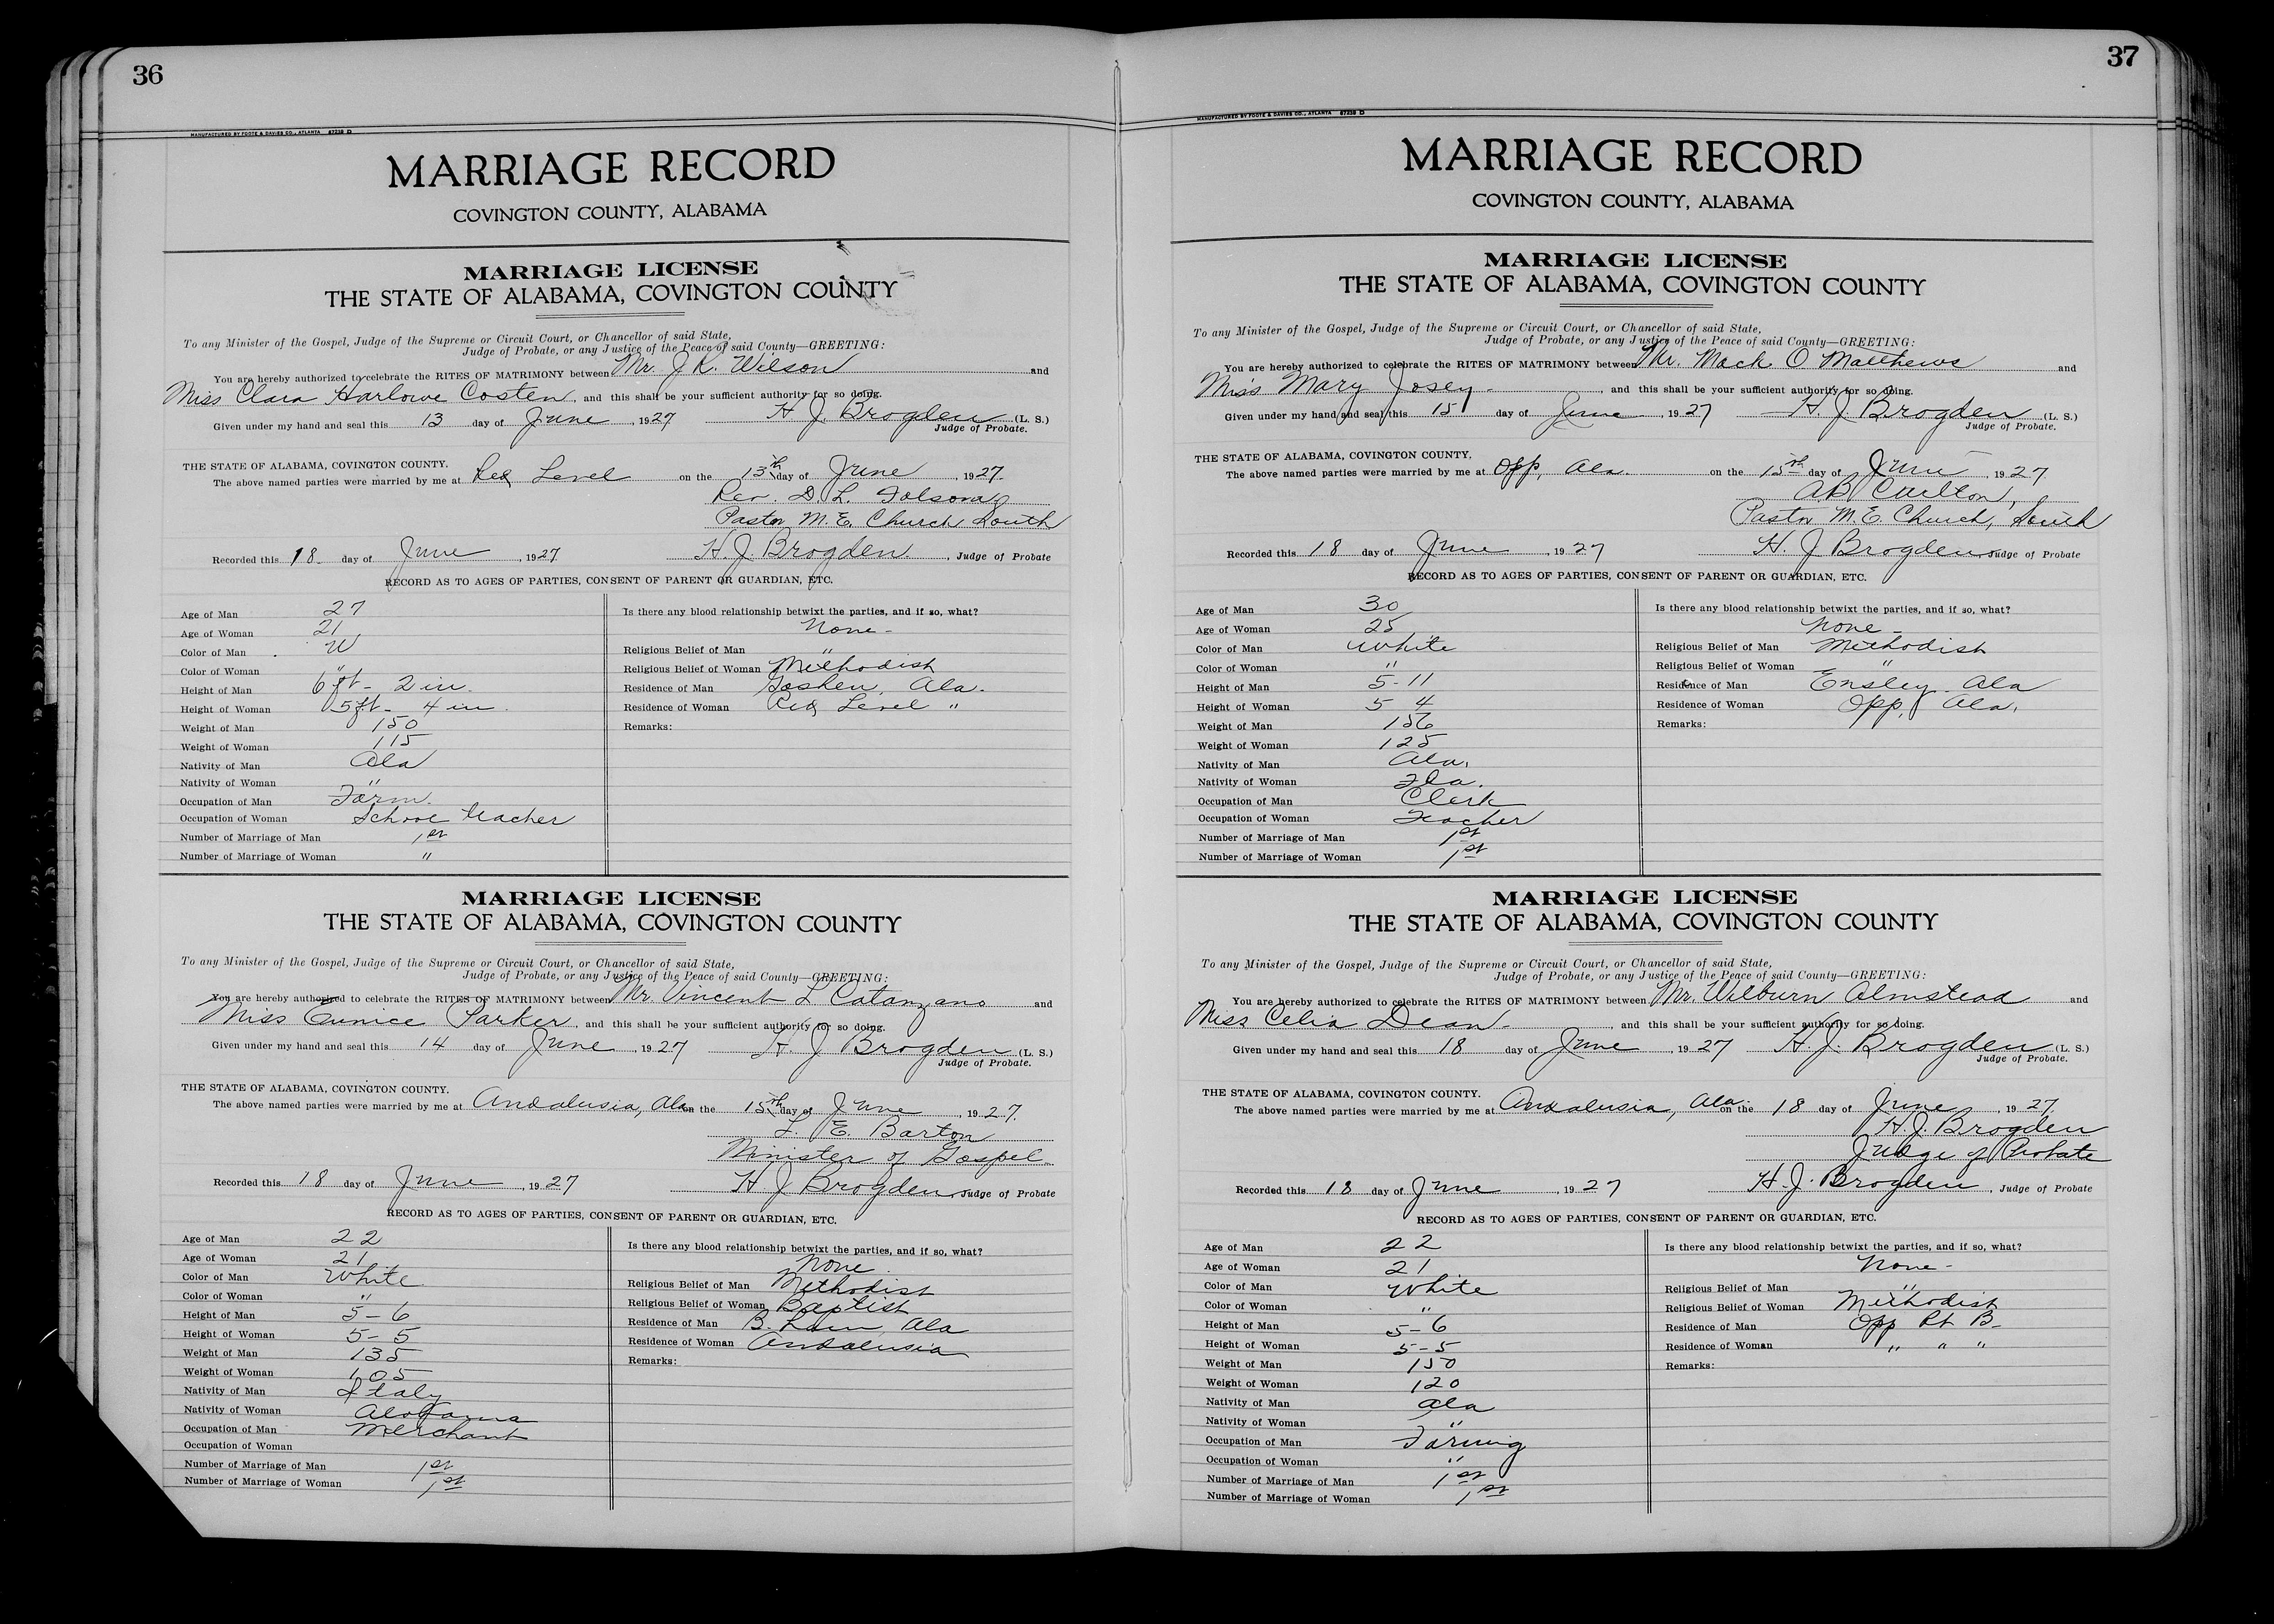 36
MANUFACTURED BY FOOTE & DAVIES CO., ATLANTA 87238 D
MARRIAGE RECORD
COVINGTON COUNTY, ALABAMA
MARRIAGE LICENSE
THE STATE OF ALABAMA, COVINGTON COUNTY
To any Minister of the Gospel, Judge of the Supreme or Circuit Court, or Chancellor of said State,
Judge of Probate, or any Justice of the Peace of said County—GREETING:
You are hereby authorized to celebrate the RITES OF MATRIMONY between Mr. J. R. Wilson and
Miss Clara Harlowe Costen, and this shall be your sufficient authority for so doing.
Given under my hand and seal this 13 day of June, 1927 H. J. Brogden (L. S.)
Judge of Probate.
THE STATE OF ALABAMA, COVINGTON COUNTY.
The above named parties were married by me at Red Level on the 13th day of June, 1927.
Rev. D. L. Folsom
Pastor M. E. Church South
Recorded this 18 day of June, 1927 H. J. Brogden, Judge of Probate
RECORD AS TO AGES OF PARTIES, CONSENT OF PARENT OR GUARDIAN, ETC.
Age of Man 27
Age of Woman 21
Color of Man W
Color of Woman "
Height of Man 6 ft - 2 in.
Height of Woman 5 ft - 4 in.
Weight of Man 150
Weight of Woman 115
Nativity of Man Ala
Nativity of Woman "
Occupation of Man Farm.
Occupation of Woman School teacher
Number of Marriage of Man 1st
Number of Marriage of Woman "
Is there any blood relationship betwixt the parties, and if so, what?
None -
Religious Belief of Man "
Religious Belief of Woman Methodist
Residence of Man Goshen, Ala.
Residence of Woman Red Level "
Remarks:
MARRIAGE LICENSE
THE STATE OF ALABAMA, COVINGTON COUNTY
To any Minister of the Gospel, Judge of the Supreme or Circuit Court, or Chancellor of said State,
Judge of Probate, or any Justice of the Peace of said County—GREETING:
You are hereby authorized to celebrate the RITES OF MATRIMONY between Mr. Vincent L Catanzano and
Miss Eunice Parker, and this shall be your sufficient authority for so doing.
Given under my hand and seal this 14 day of June, 1927 H. J Brogden (L. S.)
Judge of Probate.
THE STATE OF ALABAMA, COVINGTON COUNTY.
The above named parties were married by me at Andalusia, Ala on the 15th day of June, 1927.
L. E. Barton
Minister of Gospel
Recorded this 18 day of June, 1927 H. J Brogden, Judge of Probate
RECORD AS TO AGES OF PARTIES, CONSENT OF PARENT OR GUARDIAN, ETC.
Age of Man 22
Age of Woman 21
Color of Man White
Color of Woman "
Height of Man 5-6
Height of Woman 5-5
Weight of Man 135
Weight of Woman 105
Nativity of Man Italy
Nativity of Woman Alabama
Occupation of Man Merchant
Occupation of Woman
Number of Marriage of Man 1st
Number of Marriage of Woman 1st
Is there any blood relationship betwixt the parties, and if so, what?
None.
Religious Belief of Man Methodist
Religious Belief of Woman Baptist
Residence of Man B. Ham, Ala
Residence of Woman Andalusia
Remarks:
37
MANUFACTURED BY FOOTE & DAVIES CO., ATLANTA 87238 D
MARRIAGE RECORD
COVINGTON COUNTY, ALABAMA
MARRIAGE LICENSE
THE STATE OF ALABAMA, COVINGTON COUNTY
To any Minister of the Gospel, Judge of the Supreme or Circuit Court, or Chancellor of said State,
Judge of Probate, or any Justice of the Peace of said County—GREETING:
You are hereby authorized to celebrate the RITES OF MATRIMONY between Mr. Mack O Matthews and
Miss Mary Josey, and this shall be your sufficient authority for so doing.
Given under my hand and seal this 15 day of June, 1927 H. J. Brogden (L. S.)
Judge of Probate.
THE STATE OF ALABAMA, COVINGTON COUNTY.
The above named parties were married by me at Opp, Ala. on the 15th day of June, 1927.
A. B. Carlton,
Pastor M. E. Church, South
Recorded this 18 day of June, 1927 H. J Brogden Judge of Probate
RECORD AS TO AGES OF PARTIES, CONSENT OF PARENT OR GUARDIAN, ETC.
Age of Man 30
Age of Woman 25
Color of Man White
Color of Woman "
Height of Man 5-11
Height of Woman 5 4
Weight of Man 156
Weight of Woman 125
Nativity of Man Ala.
Nativity of Woman Fla.
Occupation of Man Clerk
Occupation of Woman Teacher
Number of Marriage of Man 1st
Number of Marriage of Woman 1st
Is there any blood relationship betwixt the parties, and if so, what?
None -
Religious Belief of Man Methodist
Religious Belief of Woman "
Residence of Man Ensley Ala
Residence of Woman Opp, Ala.
Remarks:
MARRIAGE LICENSE
THE STATE OF ALABAMA, COVINGTON COUNTY
To any Minister of the Gospel, Judge of the Supreme or Circuit Court, or Chancellor of said State,
Judge of Probate, or any Justice of the Peace of said County—GREETING:
You are hereby authorized to celebrate the RITES OF MATRIMONY between Mr. Wilburn Almstead and
Miss Celia Dean, and this shall be your sufficient authority for so doing.
Given under my hand and seal this 18 day of June, 1927 H. J. Brogden (L. S.)
Judge of Probate.
THE STATE OF ALABAMA, COVINGTON COUNTY.
The above named parties were married by me at Andalusia, Ala. on the 18 day of June, 1927.
H. J. Brogden
Judge of Probate
Recorded this 18 day of June, 1927 H. J. Brogden, Judge of Probate
RECORD AS TO AGES OF PARTIES, CONSENT OF PARENT OR GUARDIAN, ETC.
Age of Man 22
Age of Woman 21
Color of Man White
Color of Woman "
Height of Man 5-6
Height of Woman 5-5
Weight of Man 150
Weight of Woman 120
Nativity of Man Ala
Nativity of Woman "
Occupation of Man Farming
Occupation of Woman "
Number of Marriage of Man 1st
Number of Marriage of Woman 1st
Is there any blood relationship betwixt the parties, and if so, what?
None -
Religious Belief of Man "
Religious Belief of Woman Methodist
Residence of Man Opp Rt B-
Residence of Woman " " "
Remarks: